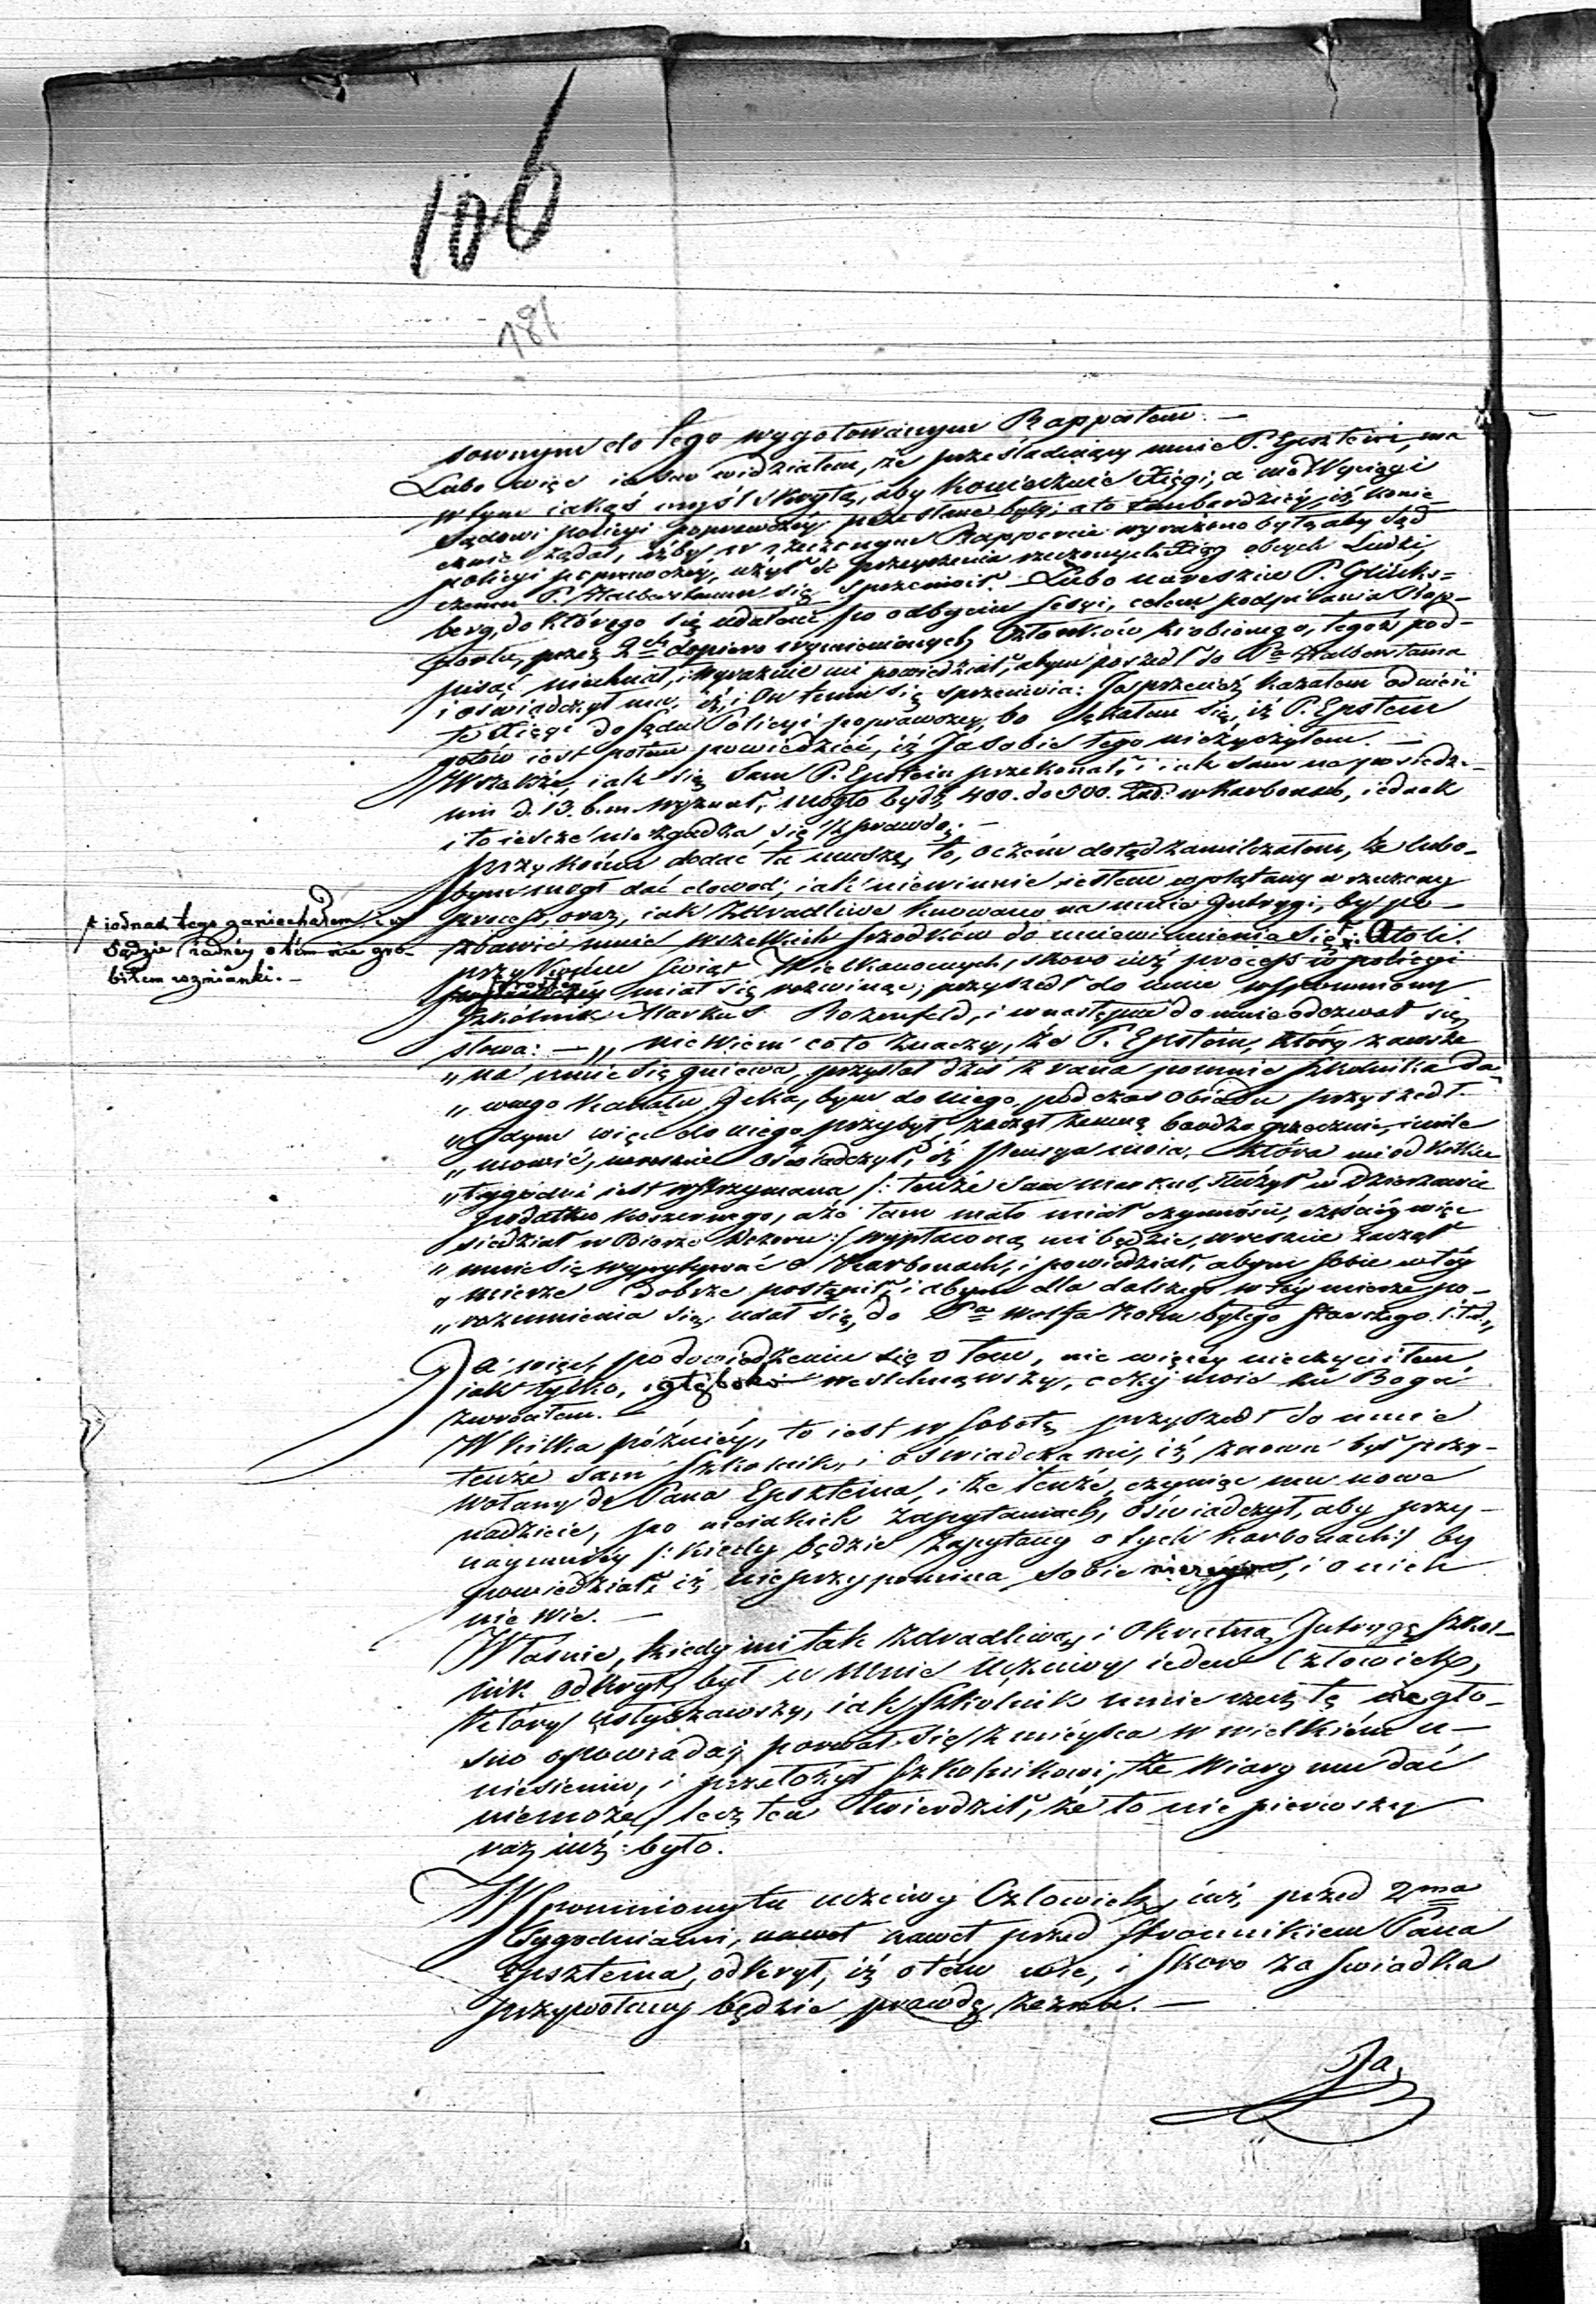 106
181
sownym do tego wygotowanym Rapportem. —
Lubo więc iasno widziałem, że prześladuiący mnie P. Epsztein, ma
w tym iakąś myśl skrytą, aby koniecznie Xięgi, a nie Wyciągi
Sądowi policyi poprawczéy przesłane były; a to tembardziéy, iż konie
cznie żądał, iżby w rzeczonym Rapporcie wyrażono było, aby Sąd
policyi poprawczéy, użył do przeyrzenia rzeczonych Xiąg obcych Ludzi,
czemu P. Halbersztamm się sprzeciwił. — Lubo nareszcie P. Glüks=
berg, do którego się udałem po odbyciu sessyi, celem podpisania Rap-
portu, przez 2ch dopiero wymienionych Członków zrobionego, tegoż pod-
pisać niechciał, i wyraźnie mi powiedział, abym poszedł do Pa Halberstama
i oświadczył mu, iż i On temu się sprzeciwia: Ja przecież kazałem odnieść
te Xięgi do Sądu Policyi poprawczey, bo lękałem się, iż P. Epstein
gotów iest potem powiedzieć, iż Ja sobie tego nieżyczyłem. —
Wszakże, iak się sam P. Epstein przekonał, i iak sam na posiedze-
niu d. 13. b.m. wyznał, mogło bydź 400. do 500. w Karbonach, iednak
i to ieszcze nie zgadza się z prawdą. —
Przy końcu dodać tu muszę, to, o czém dotąd zamilczałem, że lubo-
bym mógł dać dowód, iak niewinnie iestem wplątany w rzeczony
process, oraz, iak zdradliwe knowano na mnie Jntrygi, by po-
zbawić mnie wszelkich środków do uniewinnienia się; Atoli
+ iednak tego zaniechałem i w
Sądzie żadnéy o tém nie zro-
biłem wzmianki. —
przy końcu Świąt Wielkanocnych, skoro iuż process w policyi
prostéy miał się rozwinąć, przyszedł do mnie wspomniony
Szkólnik Markus Rozenfeld, i w następne do mnie odezwał się
słowa: — „ niewiem co to znaczy, że P. Epstein, który zawsze
„ na mnie się gniewa, przysłał dziś z rana po mnie Szkolnika da-
„ wnego Kahału Jcka, bym do niego, podczas obiadu przyszedł.
„ Gdym więc do niego przybył, zaczął zemną bardzo grzecznie, i mile
„ mówić, wreszcie oświadczył, iż pensya moia, która mi od kilku
„ tygodni iest wstrzymana /: tenże sam Markus, służył w Dzierżawie
podatku koszernego, a że tam mało miał czynności, częściéy więc
siedział w Biórze Dozoru :/ wypłaconą mi będzie, wreszcie zaczął
„ mnie się wypytywać o Karbonach, i powiedział, abym sobie w téy
„ mierze dobrze postąpił, i abym dla dalszego w téy mierze po-
„ rozumienia się, udał się, do Pa Wolfa Kohn byłego Starszego i. t. d. „
Ja więc, po dowiedzeniu się o tem, nic więcey nieczyniłem,
iak tylko, głęboko westchnąwszy, oczy moie ku Bogu
zwróciłem. —
W kilka późniéy, to iest w Sobotę przyszedł do mnie
tenże sam Szkolnik, i oświadcza mi, iż znowu był przy-
wołany do Pana Epszteina, i że tenże, czyniąc mu nowe
nadzieie, po nieiakich zapytaniach, oświadczył, aby przy-
naymniéy /: kiedy będzie zapytany o tych Karbonach :/ by
powiedział, iż nieprzypomina sobie, i o nich
nie wie. —
Właśnie, kiedy mi tak zdradliwą, i okrutną Jntrygę Szkol-
nik odkrył, był u mnie uczciwy ieden Człowiek,
który usłyszawszy, iak Szkólnik mnie rzecz tę gło-
śno opowiada, porwał się z mieysca w wielkiém u-
niesieniu, i przełożył Szkolnikowi, że wiary mu dać
niemoże, lecz ten twierdził, że to nie pierwszy
raz iuż było.
Wspomniony tu uczciwy Człowiek, iuż przed 2ma
Tygodniami, nawet przed Stronnikiem Pana
Epszteina, odkrył, iż o tém wie, i skoro za Świadka
przywołany będzie prawdę zezna. —
Ja,